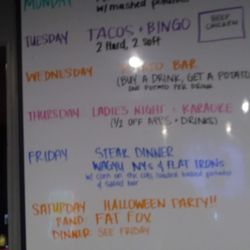 MONDAY
w/ mashed potatoes
TUESDAY TACOS + BINGO
2 Hard, 2 Soft
BEEF
CHICKEN
WEDNESDAY POTATO BAR
(BUY A DRINK, GET A POTATO
ONE POTATO PER DRINK
THURSDAY LADIES NIGHT + KARAOKE
(1/2 OFF APPS + DRINKS)
FRIDAY STEAK DINNER
WAGYU NYs & FLAT IRONS
w/ corn on the cob, loaded baked potatoes
& salad bar
SATURDAY HALLOWEEN PARTY!!
BAND: FAT FOX
DINNER: SEE FRIDAY